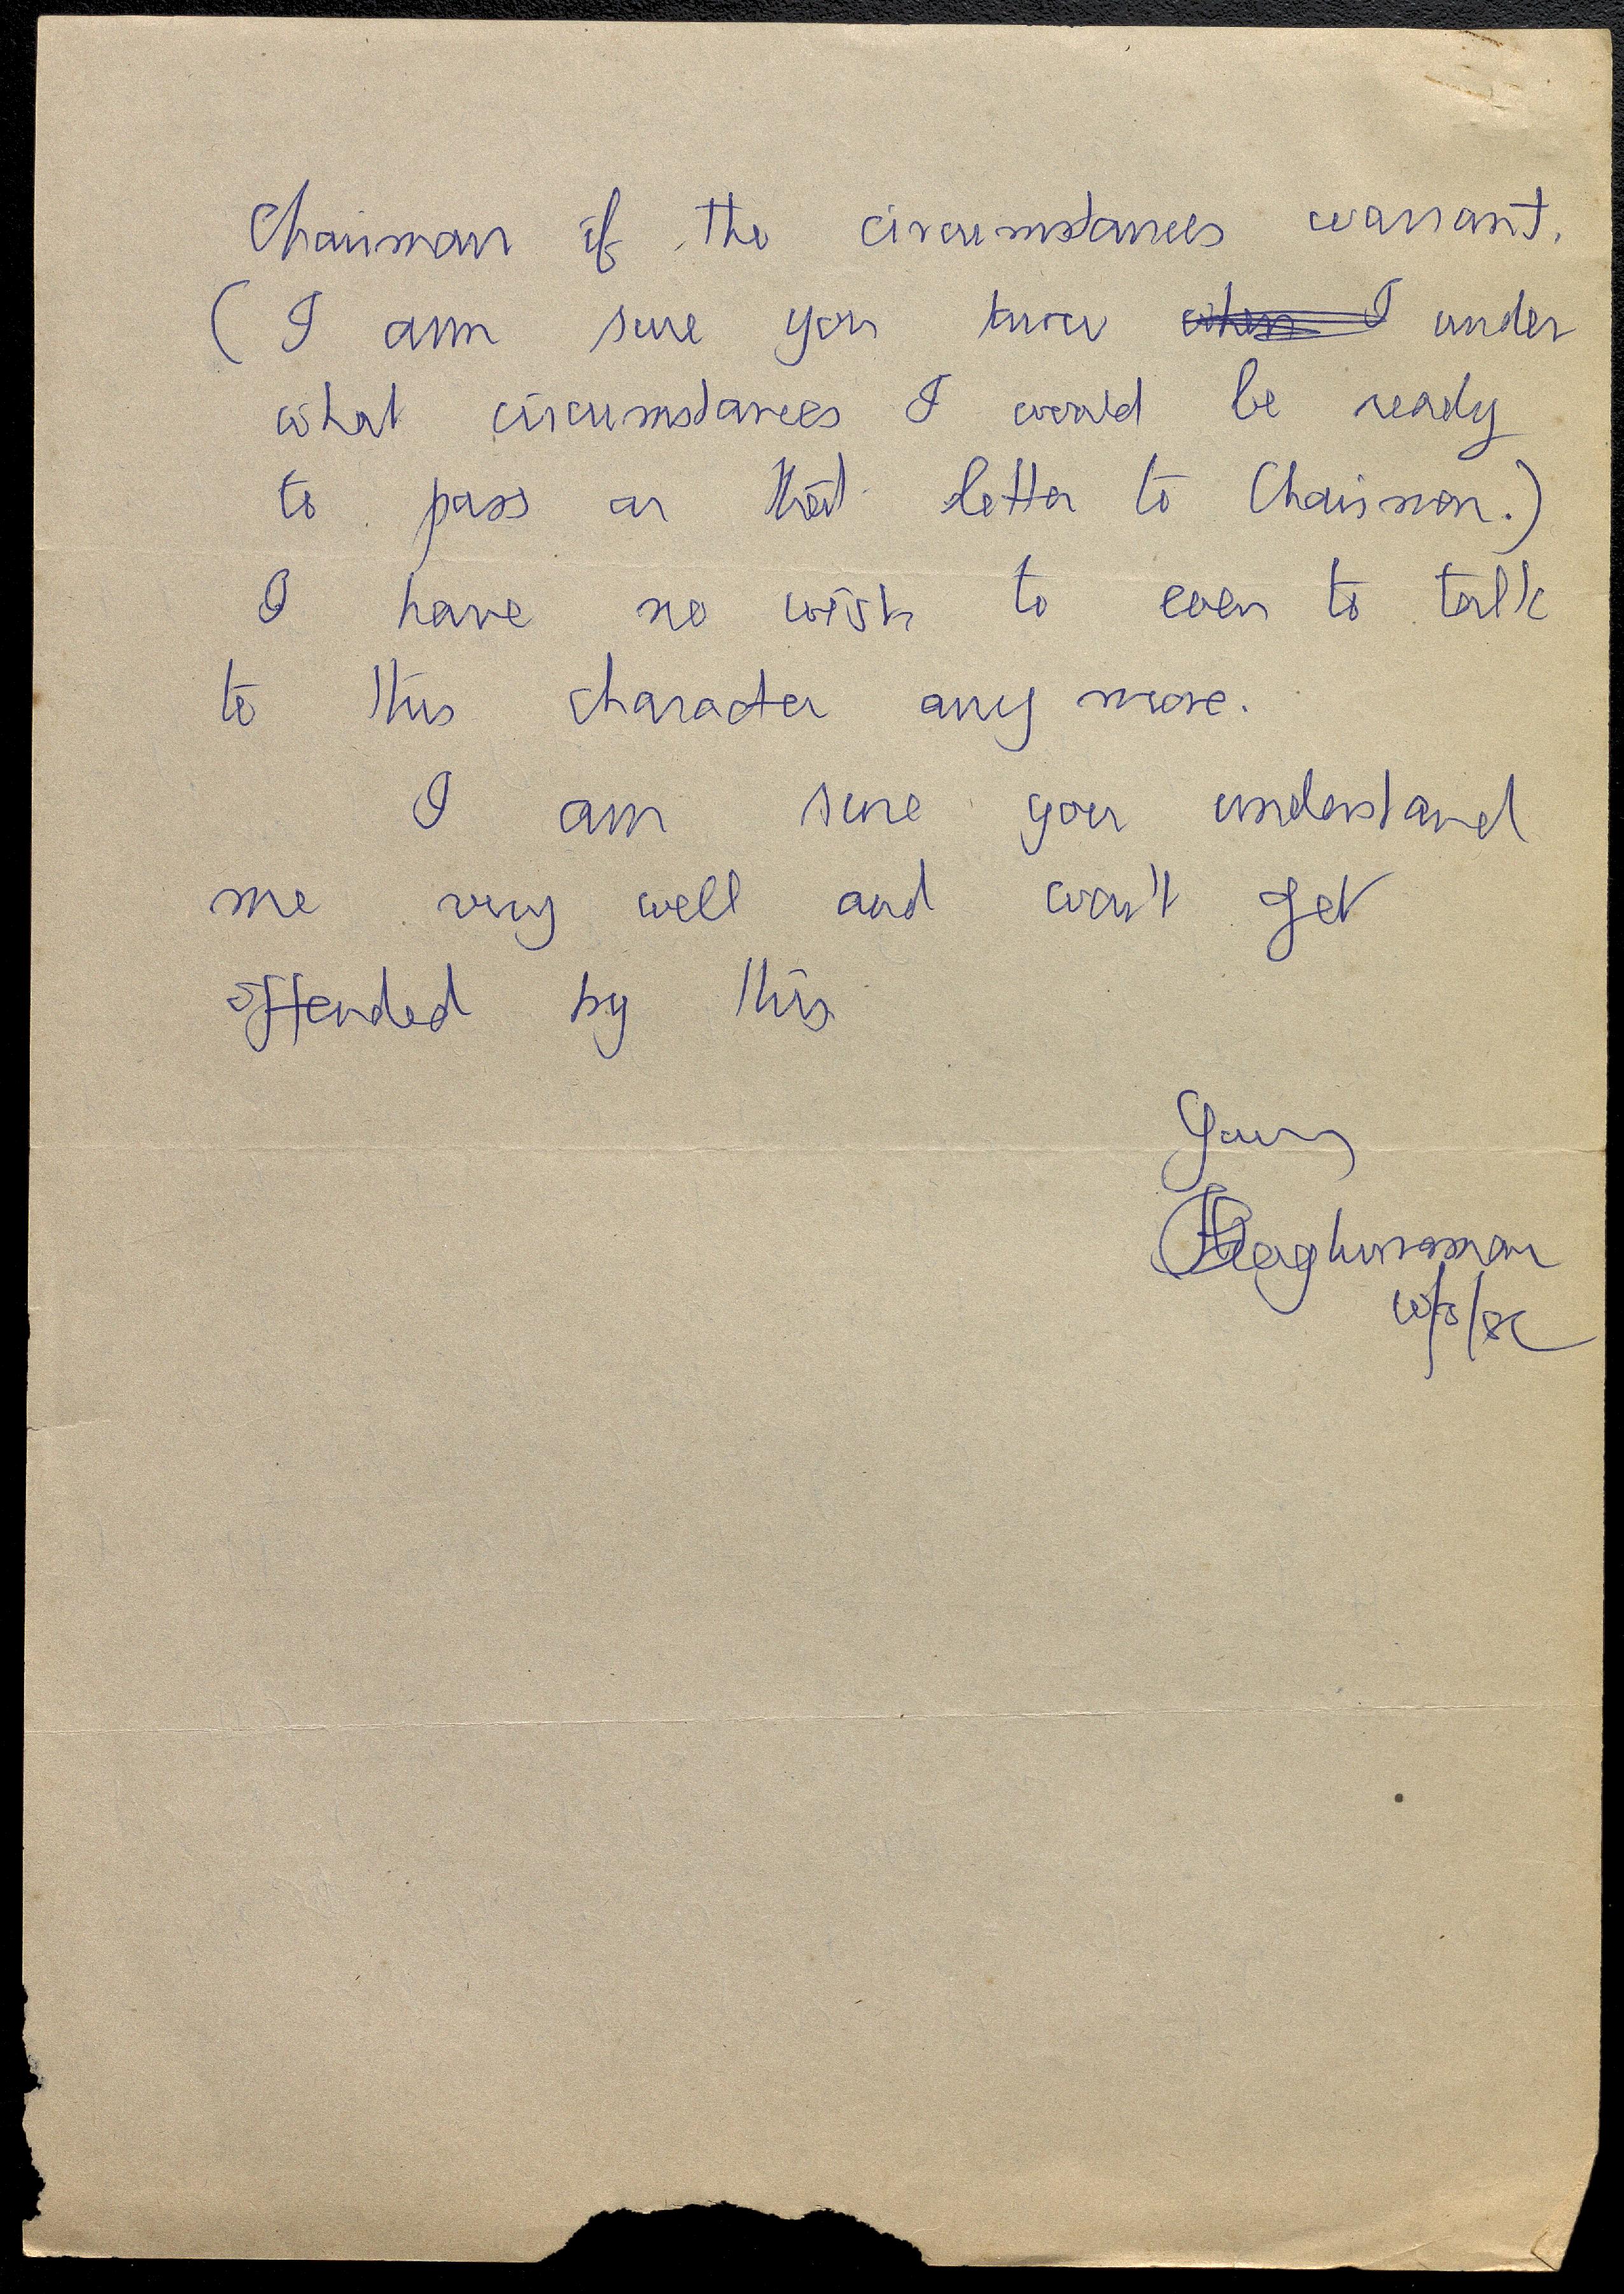 Chairman if the circumstances warrant.
( I am sure you know when I under
what circumstances I would be ready
to pass on that letter to Chairman.)
I have no wish to even to talk
to this character any more.
I am sure you understand
me very well and won't get
offended by this
Yours
Raghuraman